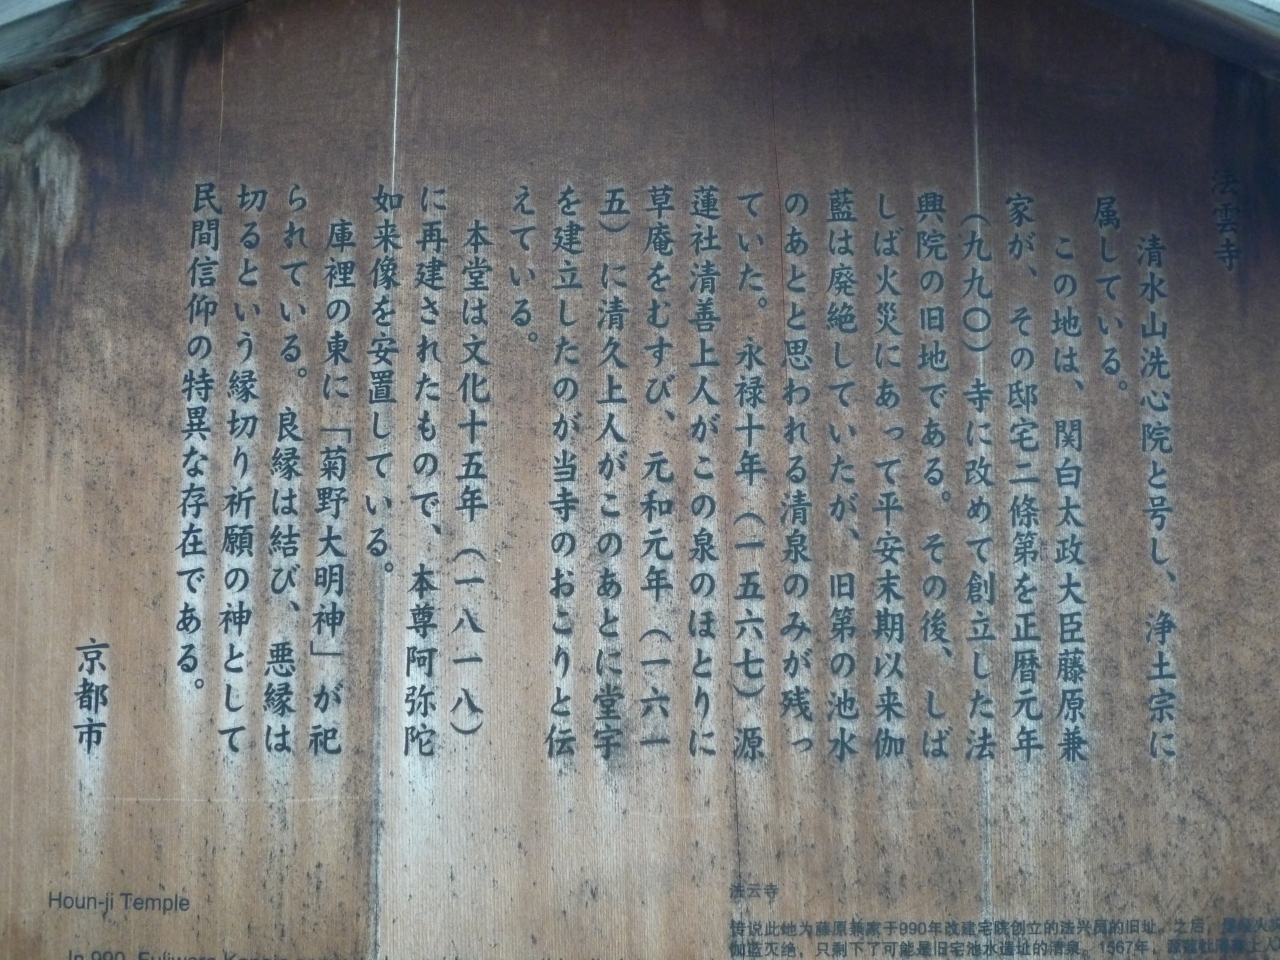 法雲寺
清水山洗心院と号し、浄土宗に
属している。
この地は、関白太政大臣藤原兼
家が、その邸宅二條第を正暦元年
（九九〇）寺に改めて創立した法
興院の旧地である。その後、しば
しば火災にあって平安末期以来伽
藍は廃絶していたが、旧第の池水
のあとと思われる清泉のみが残っ
ていた。永禄十年（一五六七）源
蓮社清善上人がこの泉のほとりに
草庵をむすび、元和元年（一六一
五）に清久上人がこのあとに堂宇
を建立したのが当寺のおこりと伝
えている。
本堂は文化十五年（一八一八）
に再建されたもので、本尊阿弥陀
如来像を安置している。
庫裡の東に「菊野大明神」が祀
られている。良縁は結び、悪縁は
切るという縁切り祈願の神として
民間信仰の特異な存在である。
京都市
Houn-ji Temple
In 990, Fujiwara
法云寺
传说此地为藤原兼家于990年改建宅院创立的法兴院的旧址。之后，
伽蓝灭绝，只剩下了可能是旧宅池水遗址的清泉。1567年，